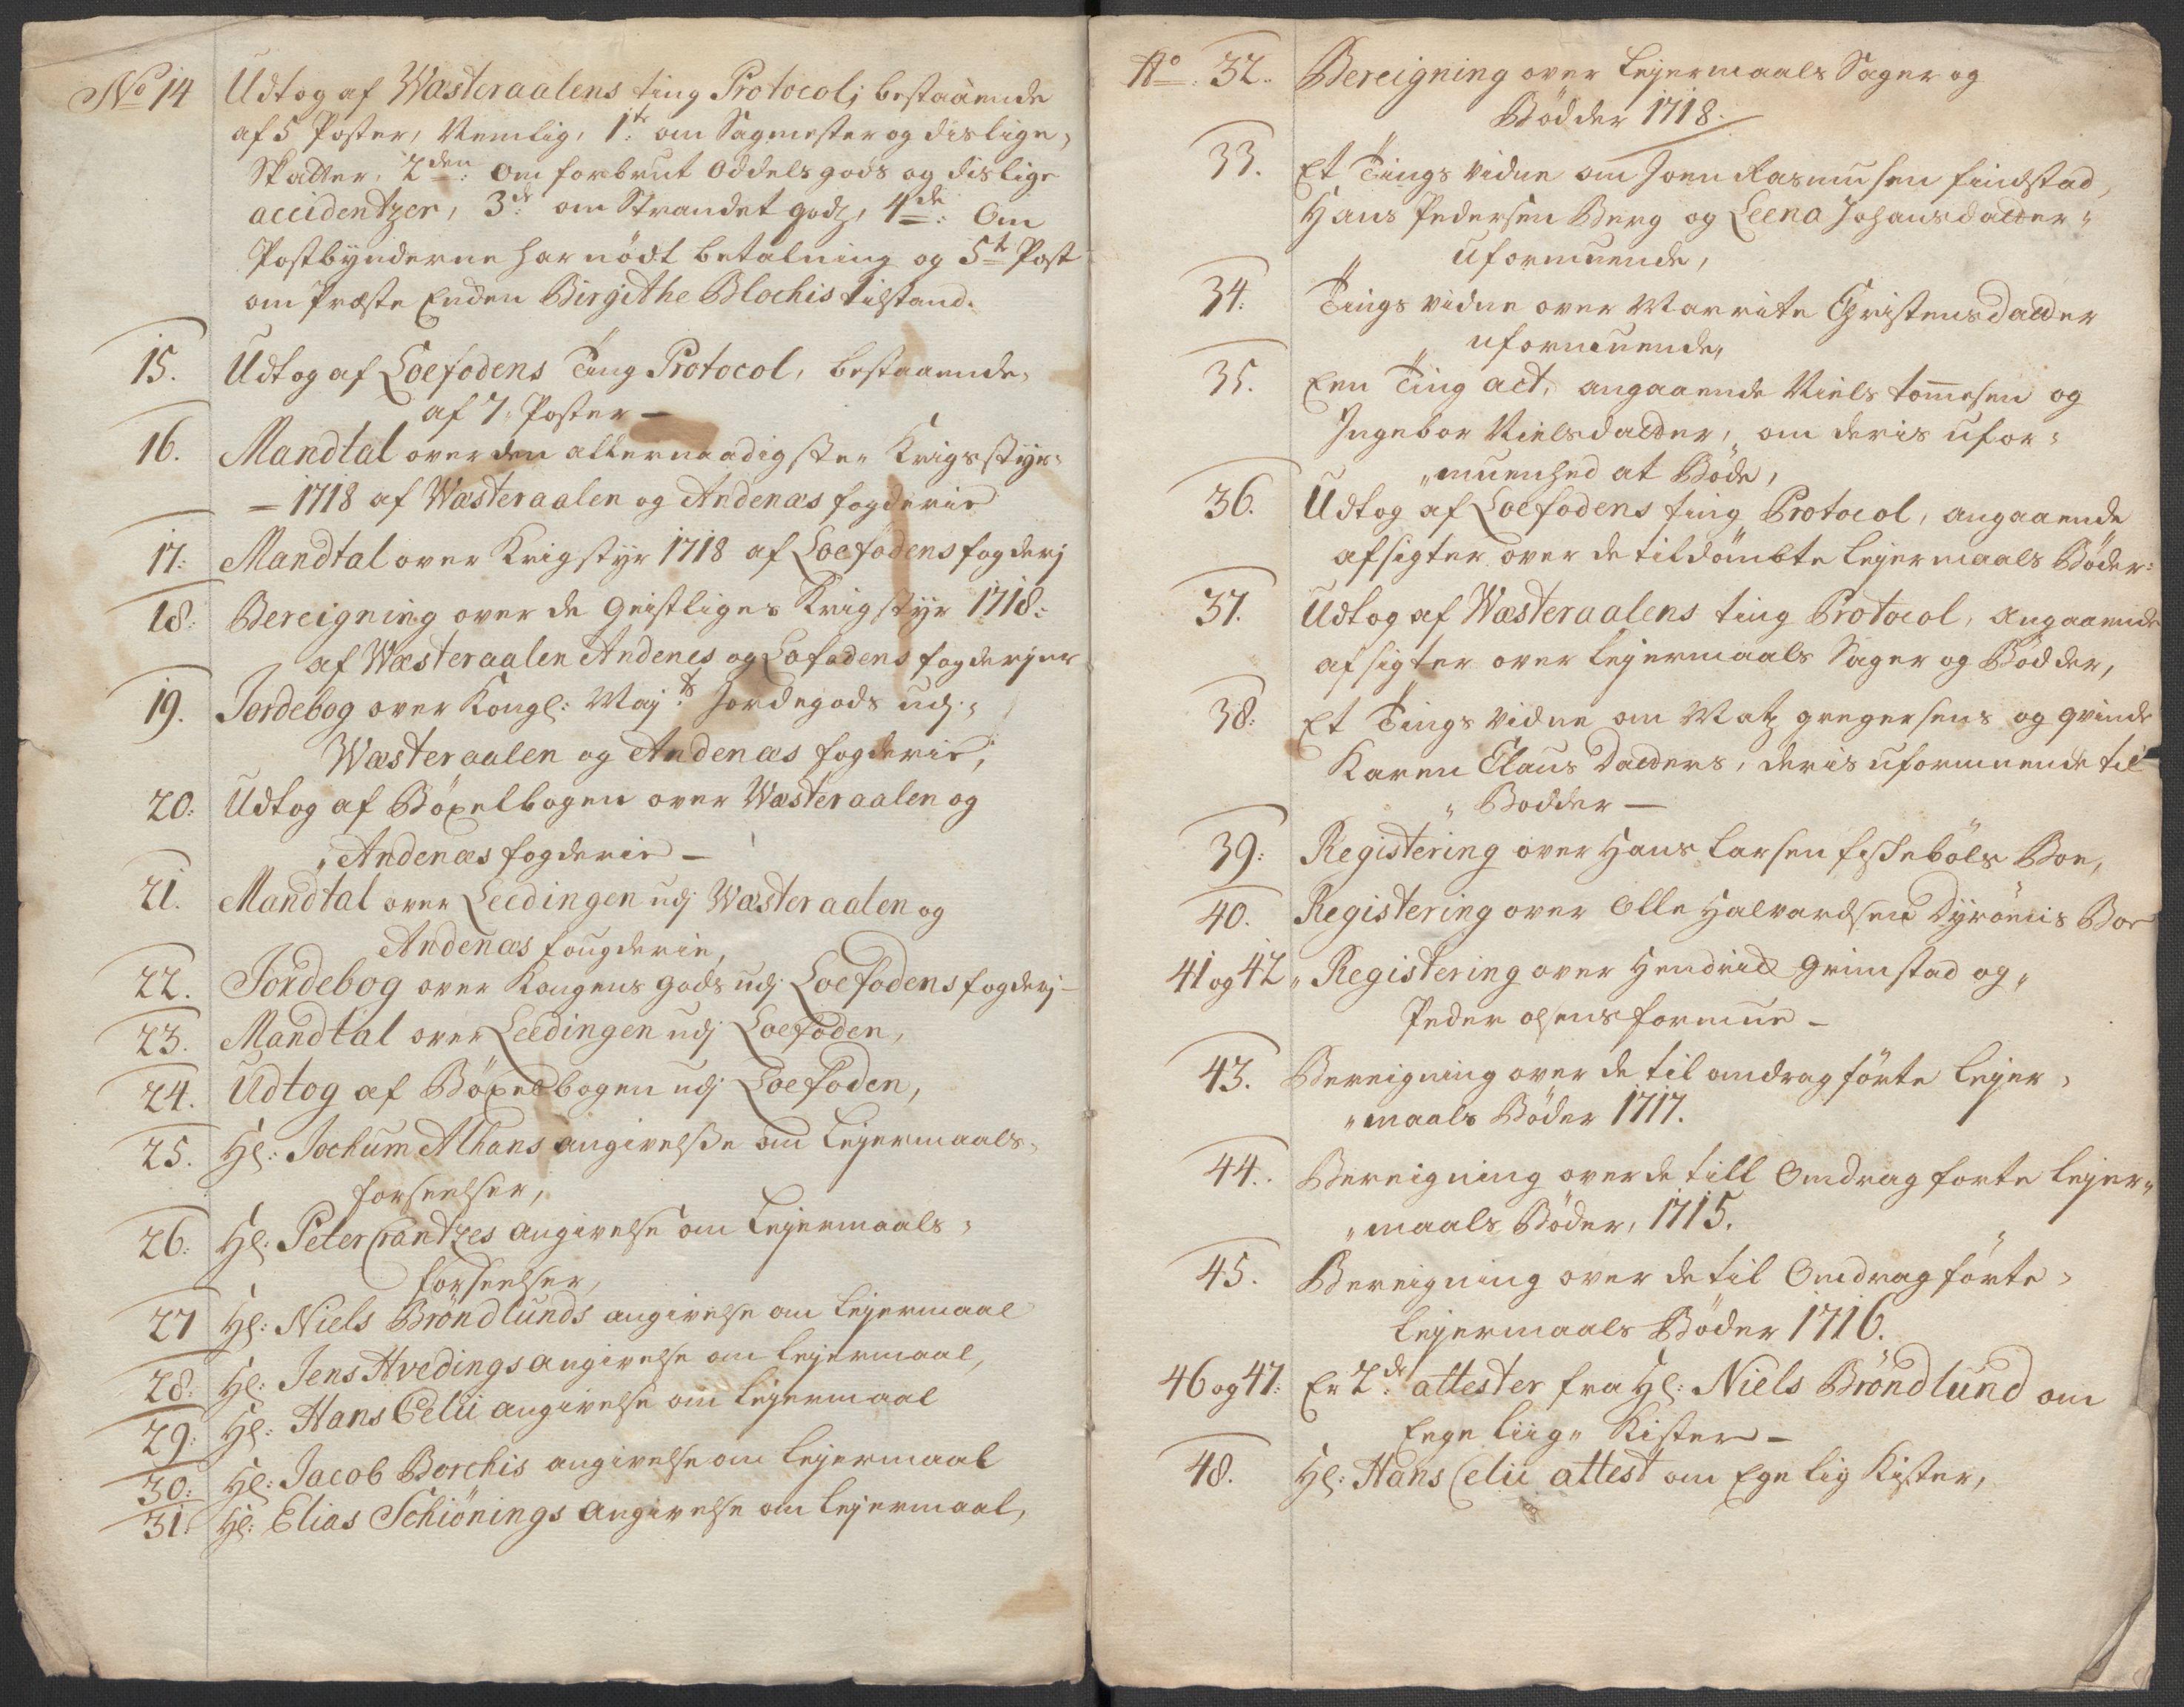 No 14 Udtog af Wæsteraalens ting Protocol; bestaaende
af 5 Poster, Nemlig, 1te: om Sagmester og dislige,
Skatter, 2den: Om forbrut Oddels gods og dislige
accidentzer, 3de: om Strandet godz, 4de: Om
Postbynderne har nödt betalning og 5te Post
om Præste Enken Birgithe Blochis tilstand.
15. Udtog af Loefodens Ting Protocol, bestaaende,
af 7. Poster —
16. Mandtal over den allernaadigste Krigsstyr
= 1718 af Wæsteraalen og Andenæs fogderie
17: Mandtal over Krigstyr 1718 af Loefodens fogderj
18: Bereigning over de Geistliges Krigstyr 1718:
af Wæsteraalen Andenes og Lofodens fogderjer
19. Jordebog over Kongl: Mayts: Jordegods udj„
Wæsteraalen og Andenæs fogderie;
20: Udtog af Böxelbogen over Wæsteraalen og
„Andenæs fogderie —
21. Mandtal over Leedingen udj Wæsteraalen og
Andenæs fougderie,
22. Jordebog over Kongens gods udj Loefodens fogderj —
23. Mandtal over Leedingen udj Loefoden,
24. Udtog af Böxelbogen udj Loefoden,
25. Hl: Jochum Alhans angivelsse om Lejermaals„
forseelser,
26: Hl: Peter Crantzes angivelse om Lejermaals„
forseelser,
27 Hl: Niels Bröndlunds angivelse om Lejermaal
28: Hl: Jens Hvedings angivelse om Lejermaal,
29: Hl: Hans Celii angivelse om Lejermaal
30: Hl: Jacob Borchis angivelse om Lejermaal
31: Hl: Elias Schiönings angivelse om Lejermaal,
No. 32. Bereigning over Lejermaals Sager og
Bödder 1718.
33. Et Tings vidne om Joen Rasmusen finstad,
Hans Pedersen Berg og Leena Johansdatter„
uformuende,
34: Tings vidne over Marrite Christensdatter
uformuende,
35. Een Ting act, angaaende Niels tomesen og
Ingebor Nielsdatter, om deris ufor„
„muenhed at Böde,
36. Udtog af Loefodens ting Protocol, angaaende
afsigter over de tildömbte Lejermaals Böder:
37. Udtog af Wæsteraalens ting Protocol, angaaende
afsigter over Lejermaals Sager og Bödder,
38: Et Tings vidne om Matz gregersens og qvinde
Karen Claus Datters, deris uformuende til
„ Bödder —
39: Registering over Hans Larsen fiskeböls Boe,
40. Registering over Olle Halvardsen Dyröniis Boe
41 og 42 „ Registering over Hendrick Grimstad og„
Peder olsens formue —
43. Bereigning over de til andrag förte Lejer„
„maals Böder 1717.
44. Bereigning over de till Omdrag forte Lejer„
„maals Böder, 1715.
45. Bereigning over de til Omdrag förte„
Lejermaals Böder 1716.
46 og 47: Er 2de: attester fra Hl: Niels Bröndlund om
Eege Liig„ Kister —
48. Hl: Hans Celii attest om Ege Lig Kister,